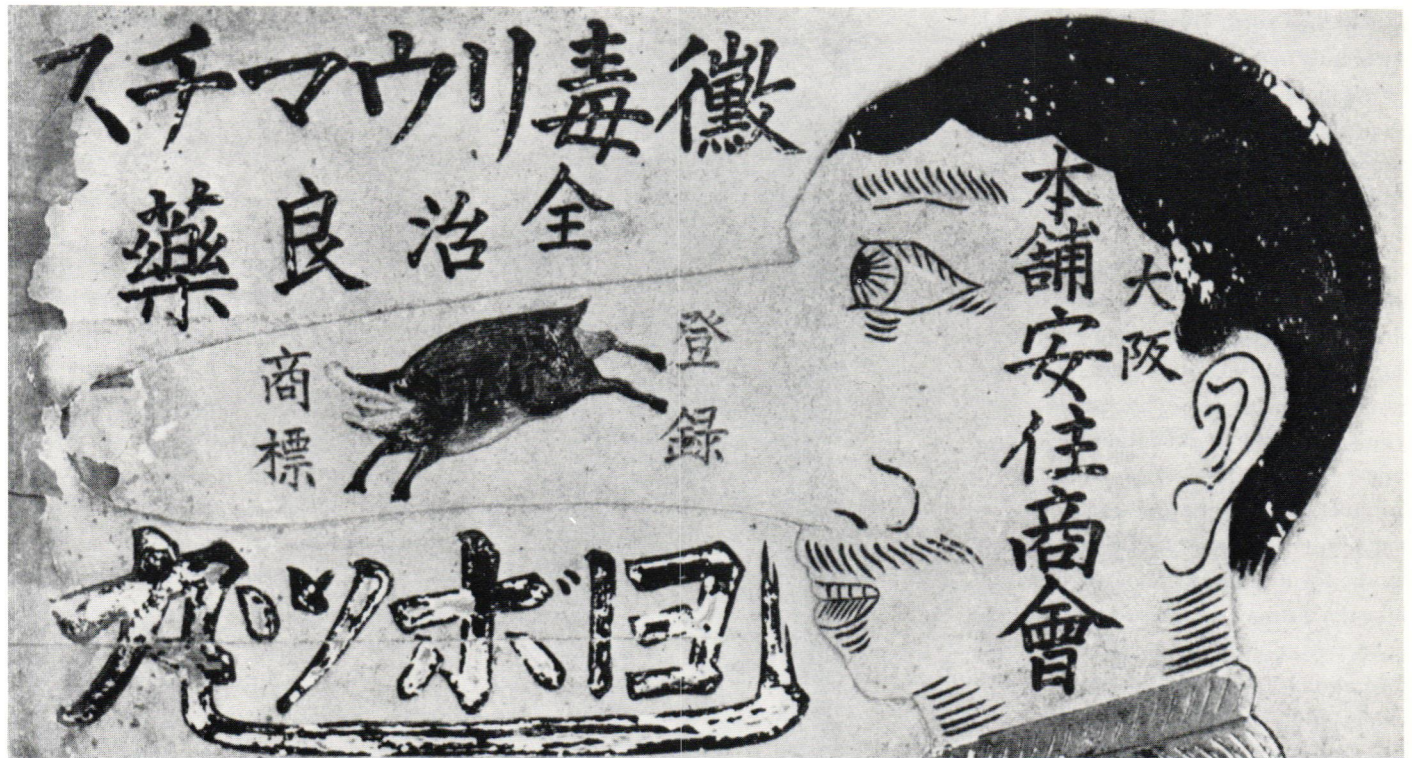 黴毒リウマチス
全治良藥
登録
商標
ヨーボツ丸
大阪
本舗安住商會